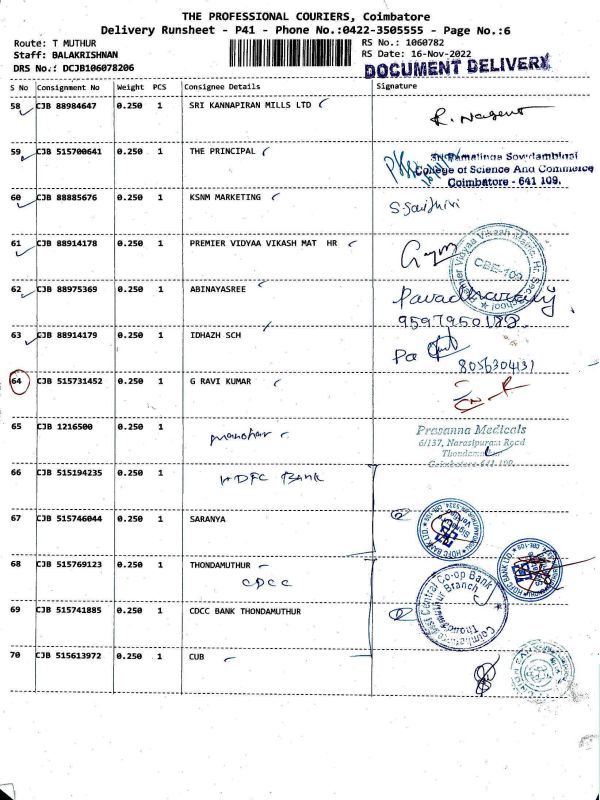 THE PROFESSIONAL COURIERS, Coimbatore
Delivery Runsheet - P41 - Phone No.:0422-3505555 - Page No.:6
Route: T MUTHUR RS No.: 1060782
Staff: BALAKRISHNAN RS Date: 16-Nov-2022
DRS No.: DCJB106078206 DOCUMENT DELIVERY
S No Consignment No Weight PCS Consignee Details Signature
58 CJB 88984647 0.250 1 SRI KANNAPIRAN MILLS LTD
59 CJB 515700641 0.250 1 THE PRINCIPAL
College of Science And Commerce
Coimbatore - 641 109.
60 CJB 88885676 0.250 1 KSNM MARKETING
61 CJB 88914178 0.250 1 PREMIER VIDYAA VIKASH MAT HR
CBE-109
62 CJB 88975369 0.250 1 ABINAYASREE
9597950188
63 CJB 88914179 0.250 1 IDHAZH SCH
8056304131
64 CJB 515731452 0.250 1 G RAVI KUMAR
65 CJB 1216500 0.250 1 manohar
Prasanna Medicals
6/137, Narasipuram Road
Coimbatore-641 109.
66 CJB 515194235 0.250 1 HDFC BANK
67 CJB 515746044 0.250 1 SARANYA
68 CJB 515769123 0.250 1 THONDAMUTHUR
CDCC
69 CJB 515741885 0.250 1 CDCC BANK THONDAMUTHUR
70 CJB 515613972 0.250 1 CUB